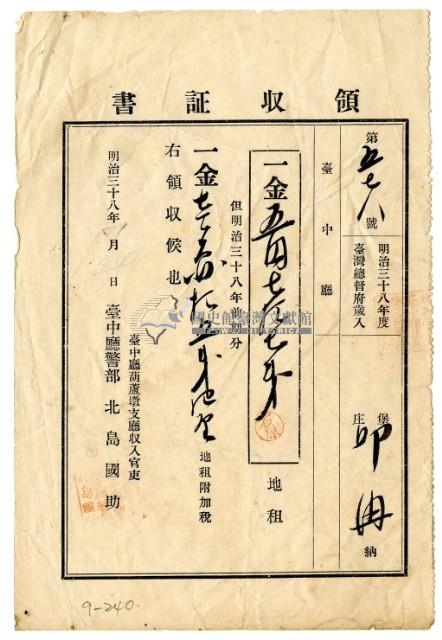 領収証書
第五七八號
明治三十八年度
臺灣總督府歲入
堡
庄
邱
納
臺中廳
一金五円七拾七戔
地租
但明治三十八年前期分
一金
地租附加税
右領収候也
明治三十八年 月 日
臺中廳葫蘆墩支廳収入官吏
臺中廳警部 北島國助
國史館臺灣文獻館
9-240